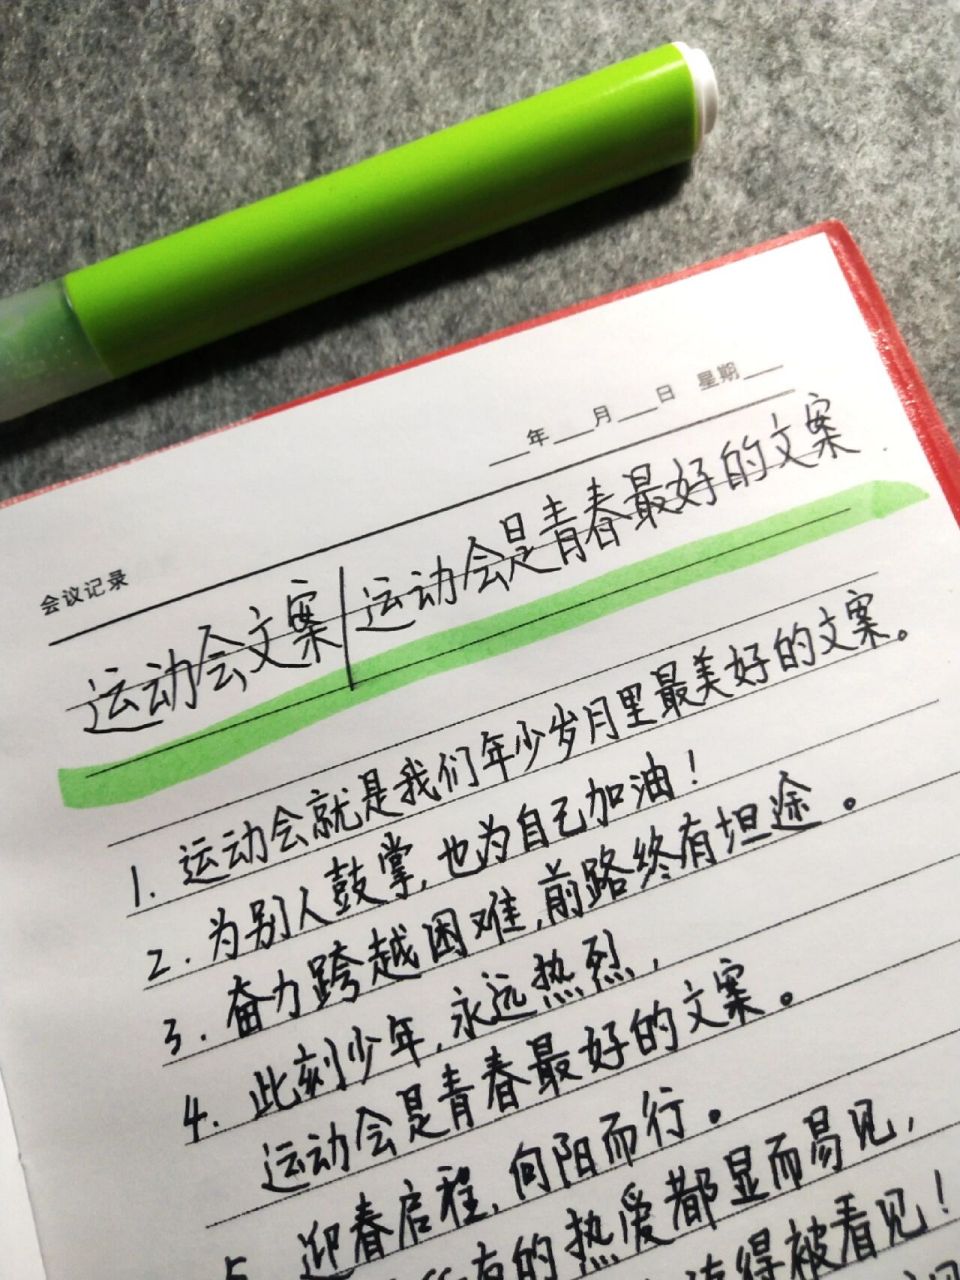 ____年____月____日 星期____
会议记录
运动会文案|运动会是青春最好的文案
1. 运动会就是我们年少岁月里最美好的文案。
2. 为别人鼓掌,也为自己加油!
3. 奋力跨越困难,前路终有坦途。
4. 此刻少年,永远热烈,
运动会是青春最好的文案。
5. 迎春启程,向阳而行。
有的热爱都显而易见,
值得被看见!